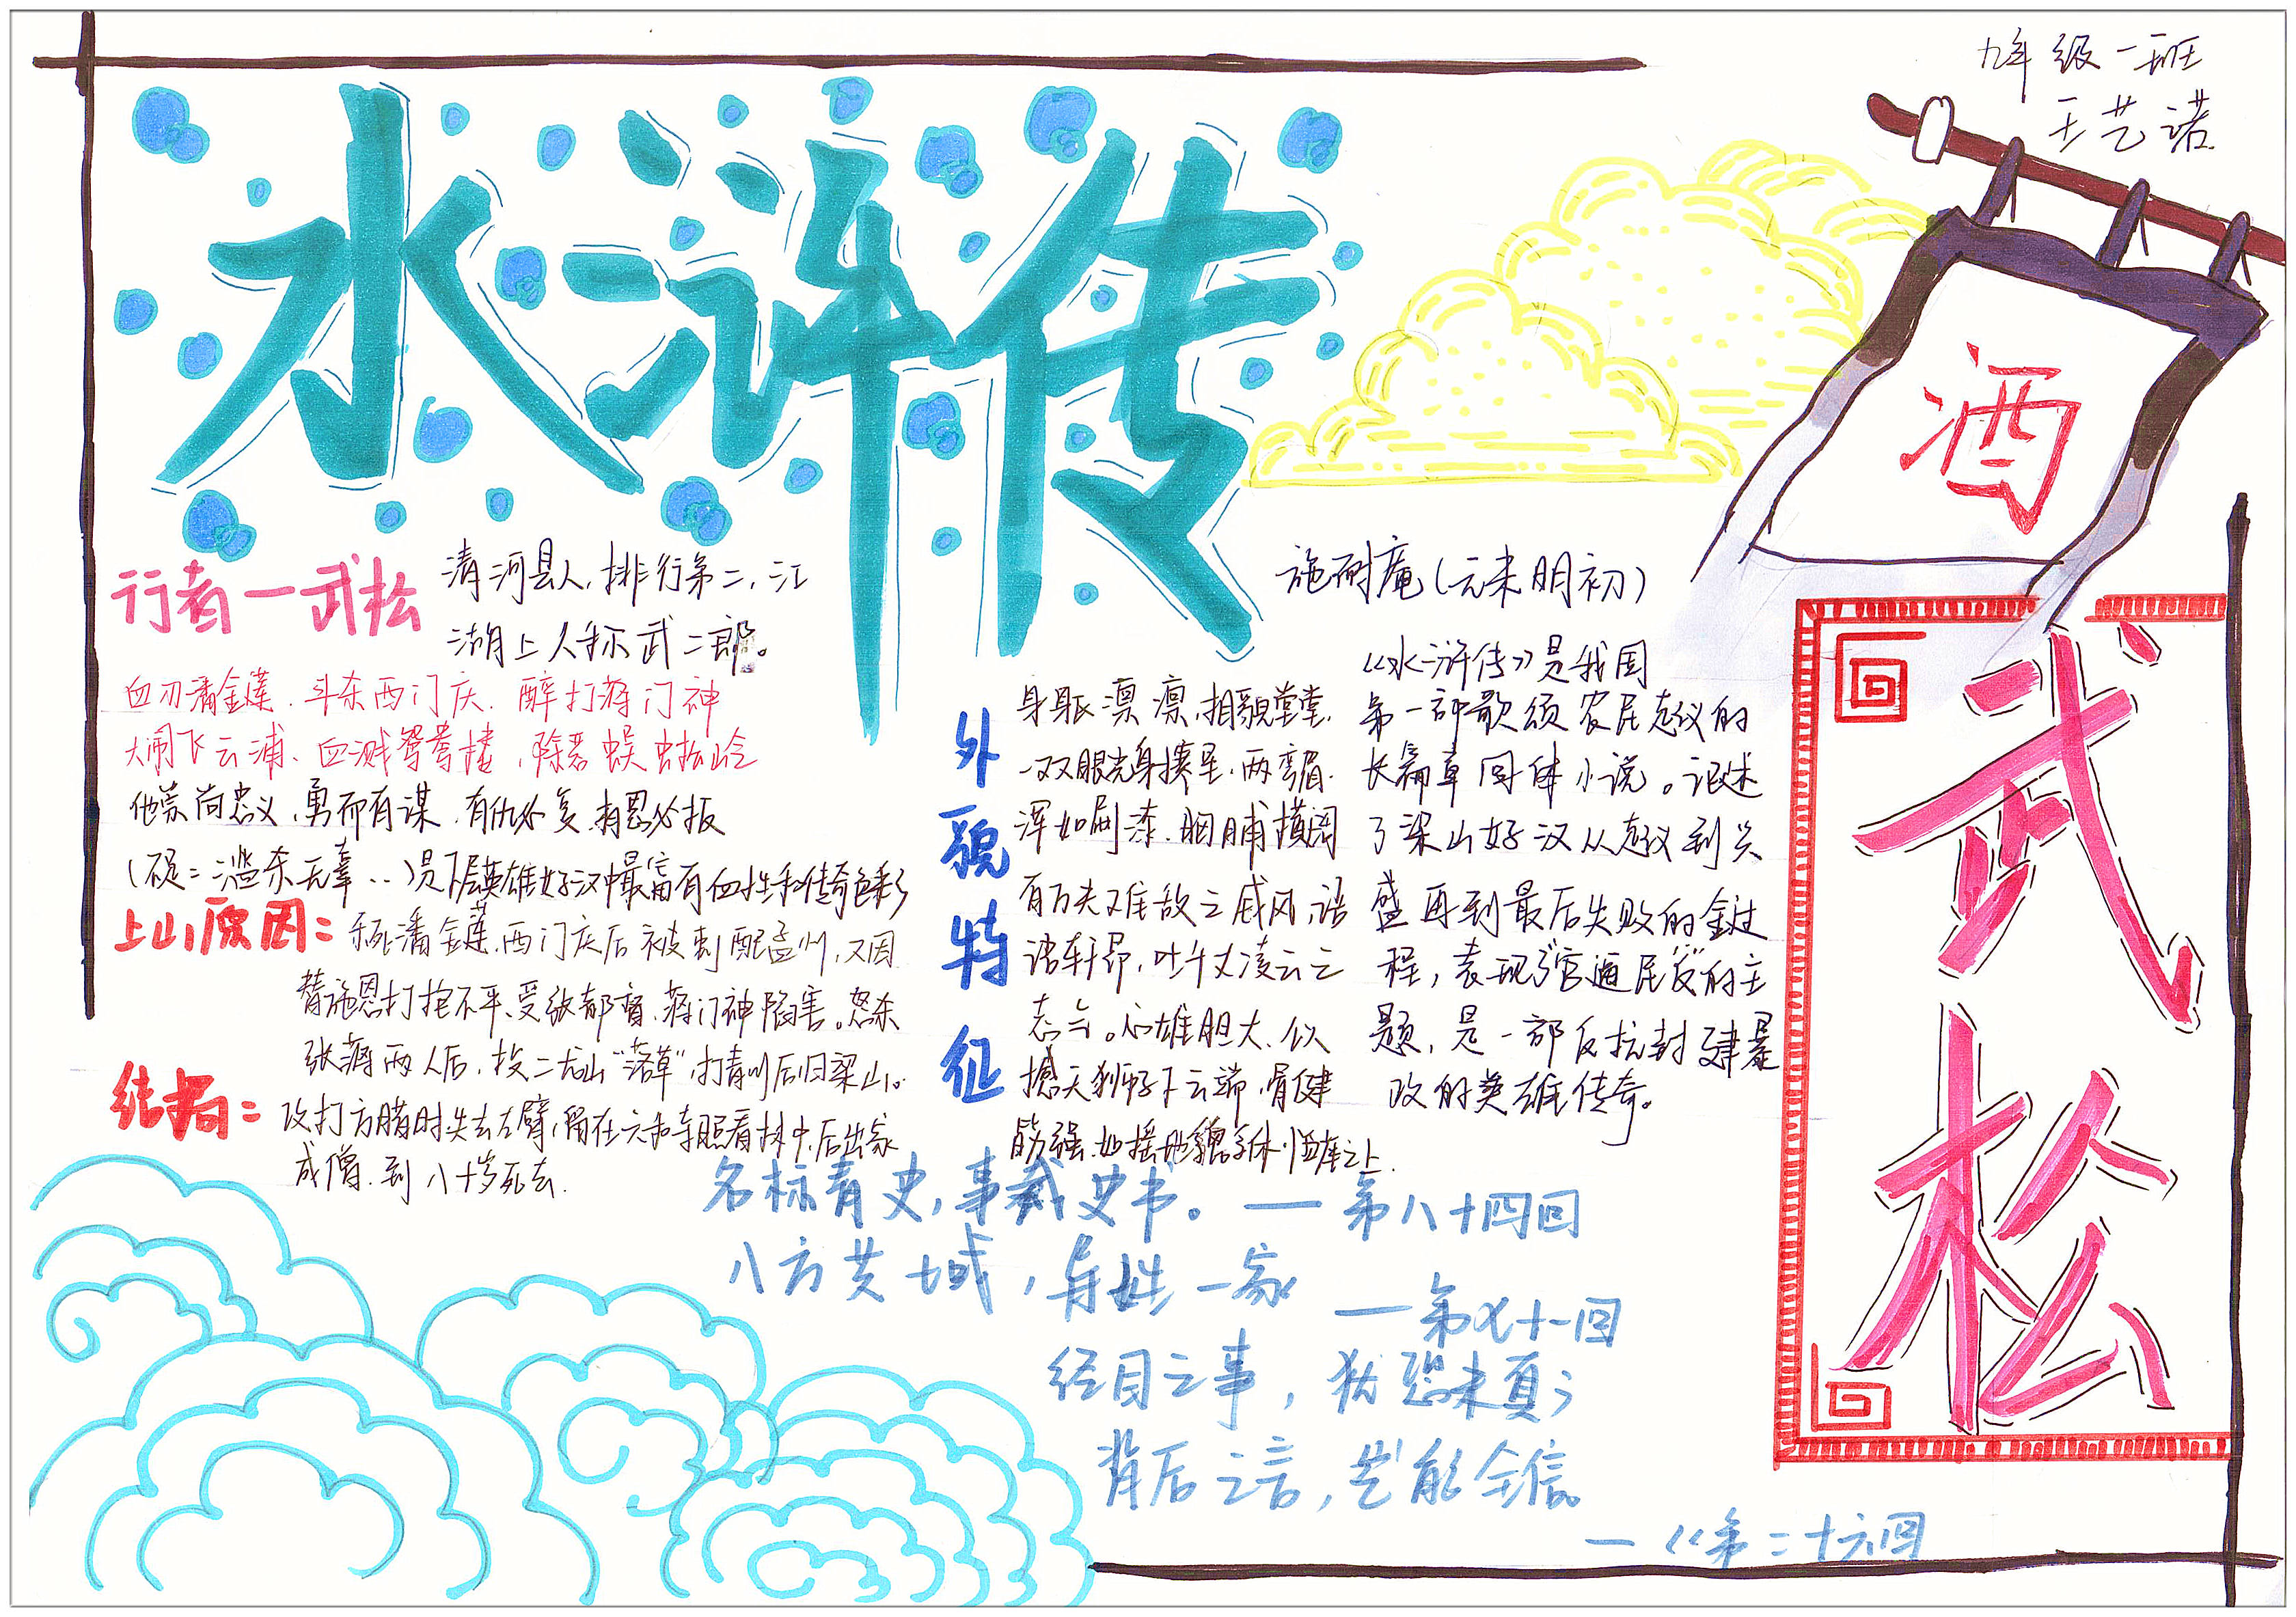 九年级一班
王艺诺
水浒传
酒
武松
行者一武松
清河县人,排行第二,江
湖上人称武二郎。
血刃潘金莲.斗杀西门庆.醉打蒋门神
大闹飞云浦、血溅鸳鸯楼,除恶蜈蚣岭
他崇尚忠义、勇而有谋.有仇必复.有恩必报
(不足:滥杀无辜...)是下层英雄好汉中最富有血性和传奇色彩
上山原因:
杀死潘金莲,西门庆后被刺配孟州,又因
替施恩打抱不平、受张都督、蒋门神陷害。怒杀
张蒋两人后,投二龙山"落草",打青州后归梁山。
结局:
攻打方腊时失去左臂,留在六和寺照看林冲,后出家
成僧.到八十岁死去.
外貌特征
身躯凛凛,相貌堂堂.
一双眼光射寒星,两弯眉.
浑如刷漆.胸脯横阔
有万夫难敌之威风,语
语轩昂,吐千丈凌云之
志气。心雄胆大、似
撼天狮子下云端,骨健
筋强.如摇地貔貅临座上.
施耐庵(元末明初)
《水浒传》是我国
第一部歌颂农民起议的
长篇章回体小说。记述
了梁山好汉从起议到兴
盛再到最后失败的全过
程,表现"官逼民反"的主
题,是一部反抗封建暴
政的英雄传奇。
名标青史,事载史书。——第八十四回
八方共域,异姓一家
——第七十一回
经目之事,犹恐未真;
背后之言,岂能全信。
——《第二十六回